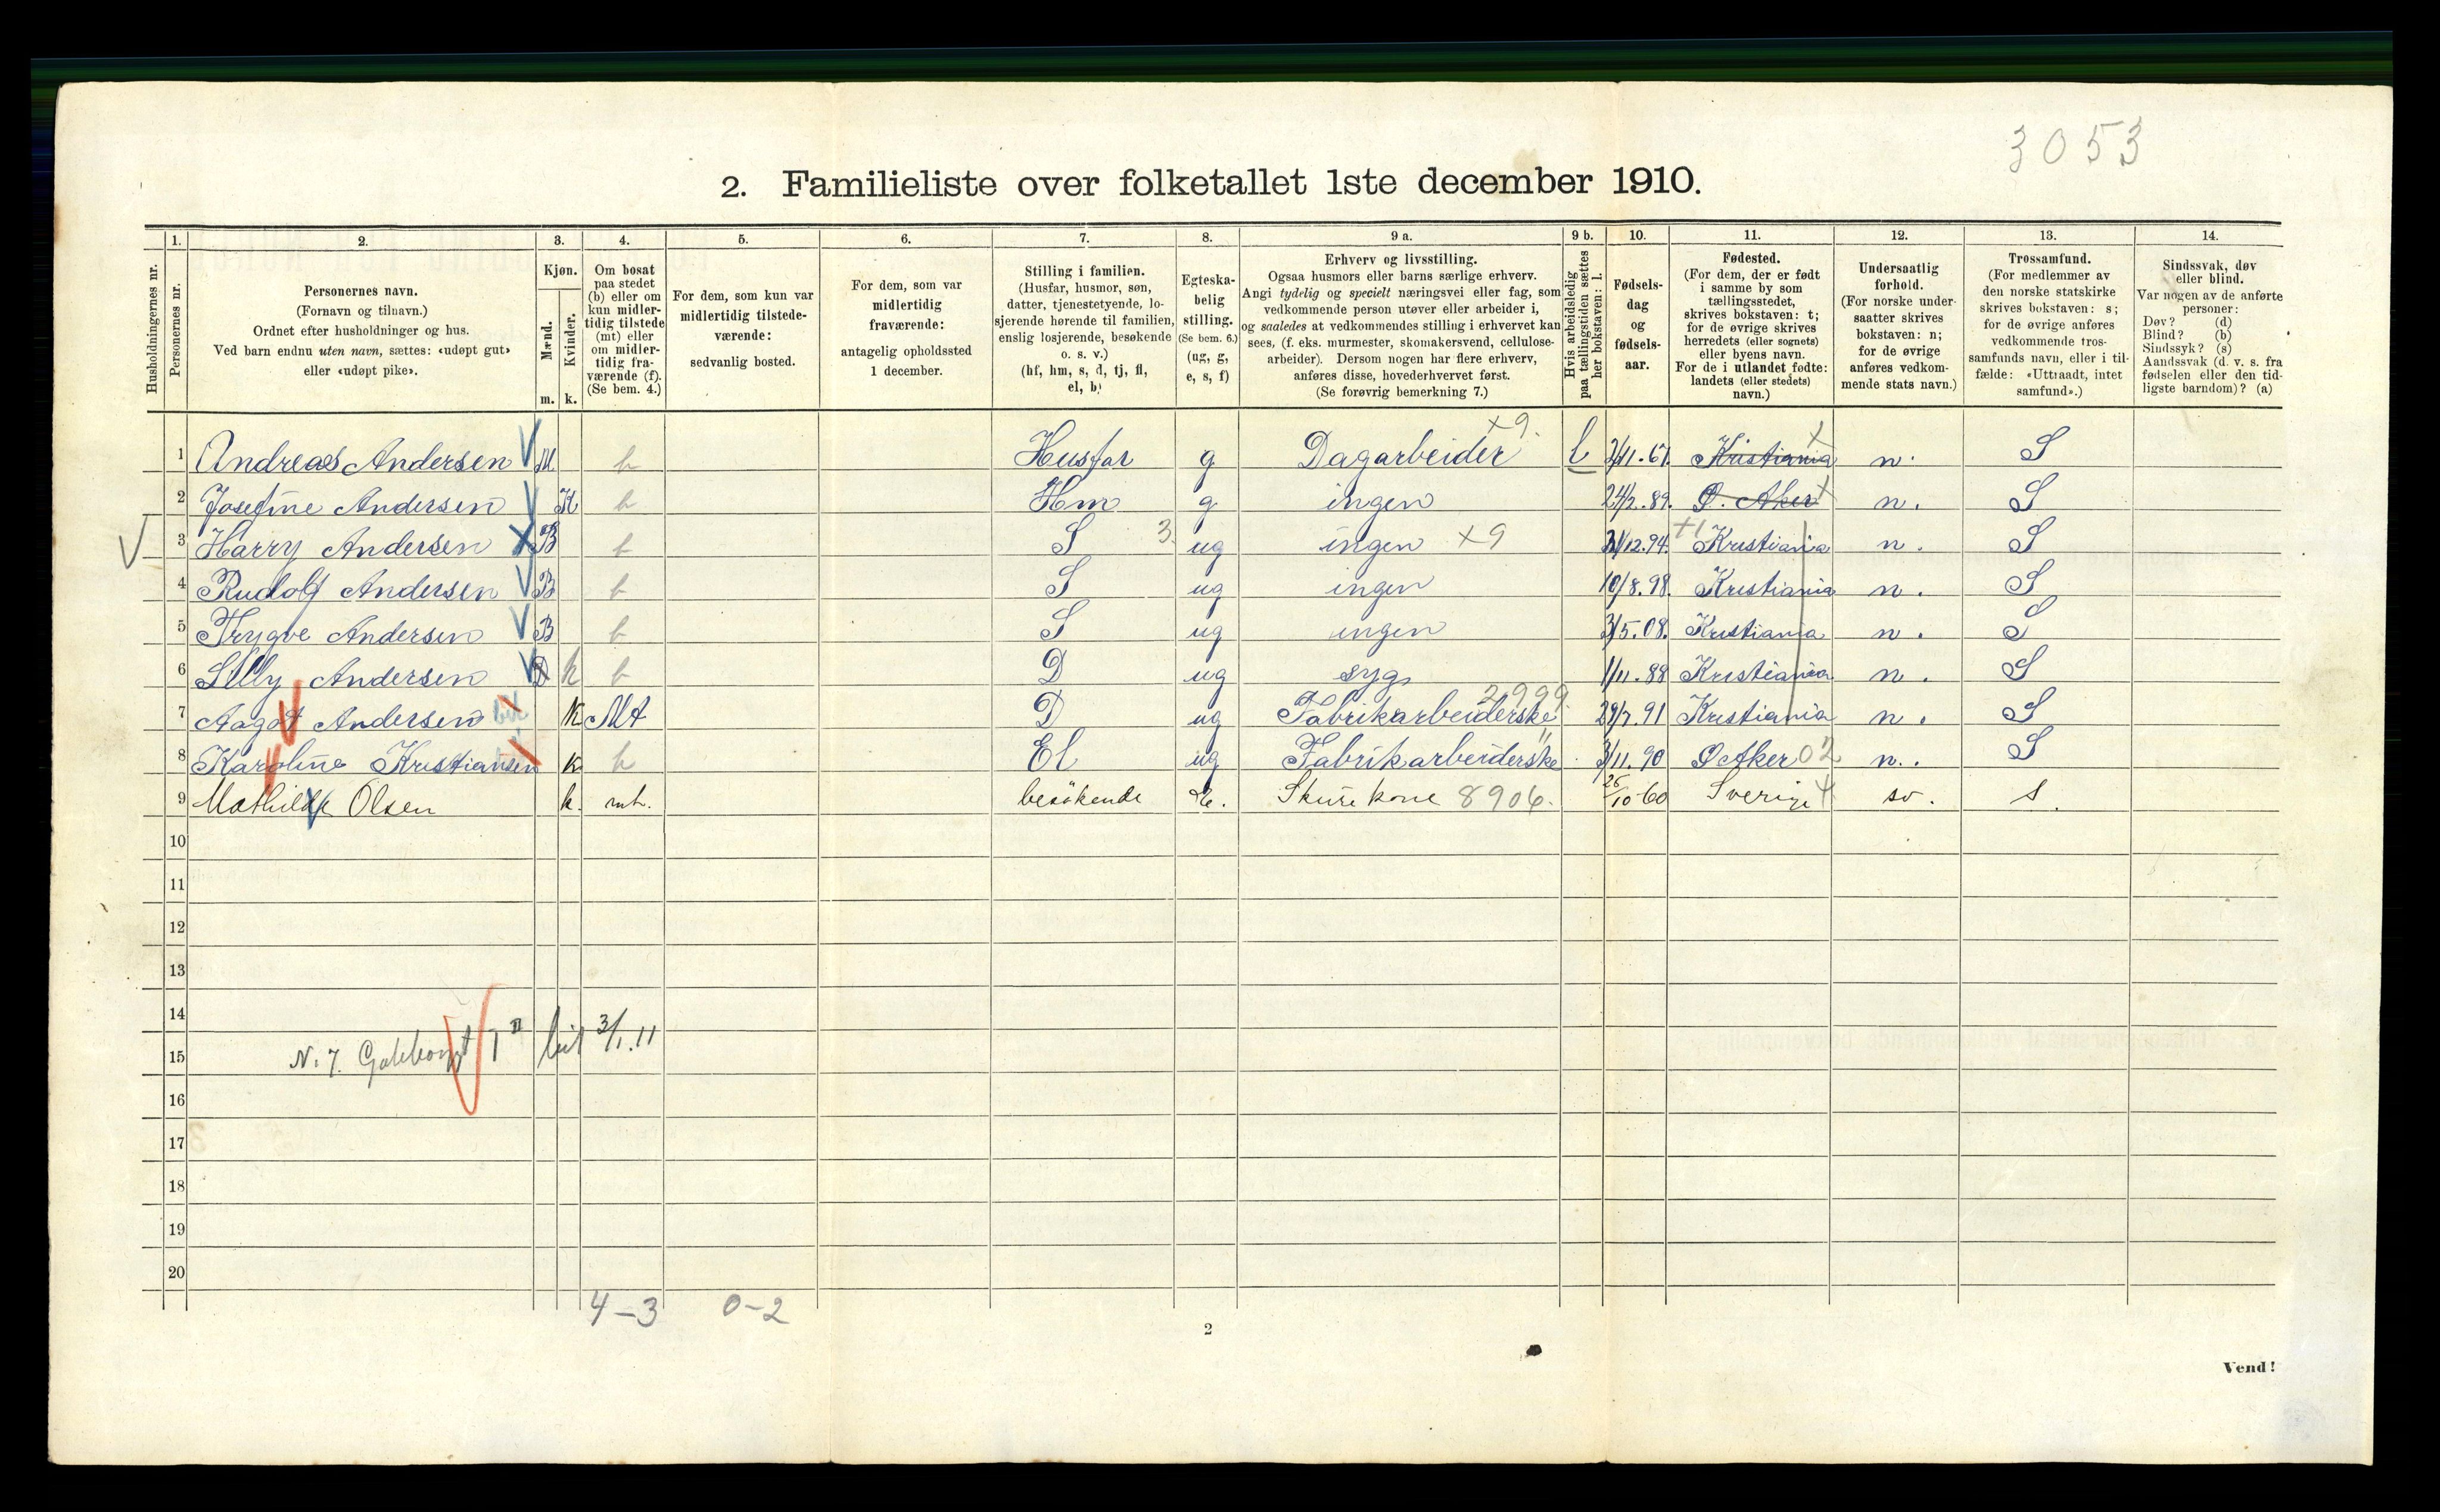 3053
2. Familieliste over folketallet 1ste december 1910.
1. 2. 3. 4. 5. 6. 7. 8. 9 a. 9 b. 10. 11. 12. 13. 14.
Husholdningernes nr.
Personernes nr.
Personernes navn.
(Fornavn og tilnavn.)
Ordnet efter husholdninger og hus.
Ved barn endnu uten navn, sættes: «udøpt gut»
eller «udøpt pike».
Kjøn.
Mænd.
Kvinder.
m. k.
Om bosat
paa stedet
(b) eller om
kun midler-
tidig tilstede
(mt) eller
om midler-
tidig fra-
værende (f).
(Se bem. 4.)
For dem, som kun var
midlertidig tilstede-
værende:
sedvanlig bosted.
For dem, som var
midlertidig
fraværende:
antagelig opholdssted
1 december.
Stilling i familien.
(Husfar, husmor, søn,
datter, tjenestetyende, lo-
sjerende hørende til familien,
enslig losjerende, besøkende
o. s. v.)
(hf, hm, s, d, tj, fl,
el, b)
Egteska-
belig
stilling.
(Se bem. 6.)
(ug, g,
e, s, f)
Erhverv og livsstilling.
Ogsaa husmors eller barns særlige erhverv.
Angi tydelig og specielt næringsvei eller fag, som
vedkommende person utøver eller arbeider i,
og saaledes at vedkommendes stilling i erhvervet kan
sees, (f. eks. murmester, skomakersvend, cellulose-
arbeider). Dersom nogen har flere erhverv,
anføres disse, hovederhvervet først.
(Se forøvrig bemerkning 7.)
Hvis arbeidsledig
paa tællingstiden sættes
her bokstaven: l.
Fødsels-
dag
og
fødsels-
aar.
Fødested.
(For dem, der er født
i samme by som
tællingsstedet,
skrives bokstaven: t;
for de øvrige skrives
herredets (eller sognets)
eller byens navn.
For de i utlandet fødte:
landets (eller stedets)
navn.)
Undersaatlig
forhold.
(For norske under-
saatter skrives
bokstaven: n;
for de øvrige
anføres vedkom-
mende stats navn.)
Trossamfund.
(For medlemmer av
den norske statskirke
skrives bokstaven: s;
for de øvrige anføres
vedkommende tros-
samfunds navn, eller i til-
fælde: «Uttraadt, intet
samfund».)
Sindssvak, døv
eller blind.
Var nogen av de anførte
personer:
Døv? (d)
Blind? (b)
Sindssyk? (s)
Aandssvak (d. v. s. fra
fødselen eller den tid-
ligste barndom)? (a)
1 Andreas Andersen M b Husfar g Dagarbeider x9. l Kristiania x n. S
2 Josefine Andersen K b Hm g ingen 24/2.89. Ø. Aker x n. S
3 Harry Andersen B b S 3 ug ingen x9 +1 Kristiania n. S
4 Rudolf Andersen B b S ug ingen 10/8.98. Kristiania n. S
5 Trygve Andersen B b S ug ingen 3/5.08. Kristiania n. S
6 Lilly Andersen k b D ug syg 1/11.88 Kristiania n. S
7 Aagot Andersen K Mt D ug Fabrikarbeiderske 2999 29/7.91 Kristiania n. S
8 Karoline Kristiansen K b El ug Fabrikarbeiderske " 3/11.90 Ø Aker 02 n. S
9 Mathilde Olsen k. mt. besøkende e. Skurekone 8906. 25/10-60 Sverige 4 sv. s.
10
11
12
13
14
15 N. 7. 3/1.11
16
17
18
19
20
4-3 0-2
2
Vend!